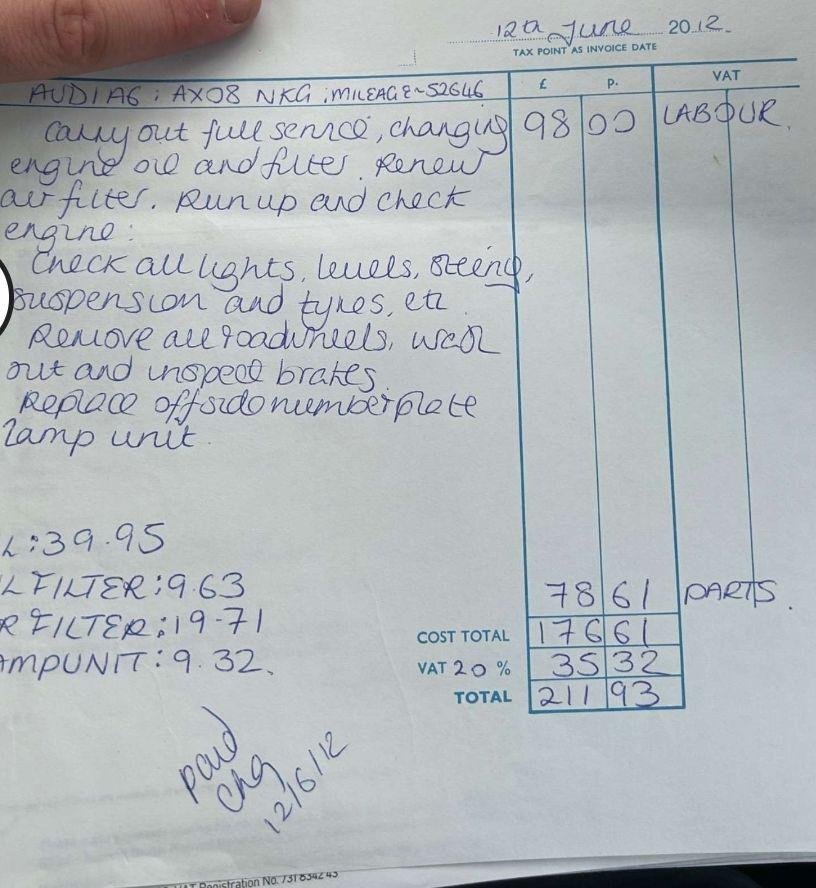 12th June 2012
TAX POINT AS INVOICE DATE
AUDI A6 : AX08 NKG : MILEAGE ~ 52646 £ p. VAT
Carry out full service, changing 98 00 LABOUR.
engine oil and filter. Renew
air filter. Run up and check
engine.
Check all lights, levels, steering,
suspension and tyres, etc.
Remove all roadwheels, wash
out and inspect brakes.
Replace offside numberplate
lamp unit.
L : 39.95
L FILTER : 9.63 78 61 PARTS.
R FILTER : 19-71 COST TOTAL 176 61
AMPUNIT : 9.32. VAT 20 % 35 32
TOTAL 211 93
paid
chq
12/6/12
Registration No. 731 8342 43